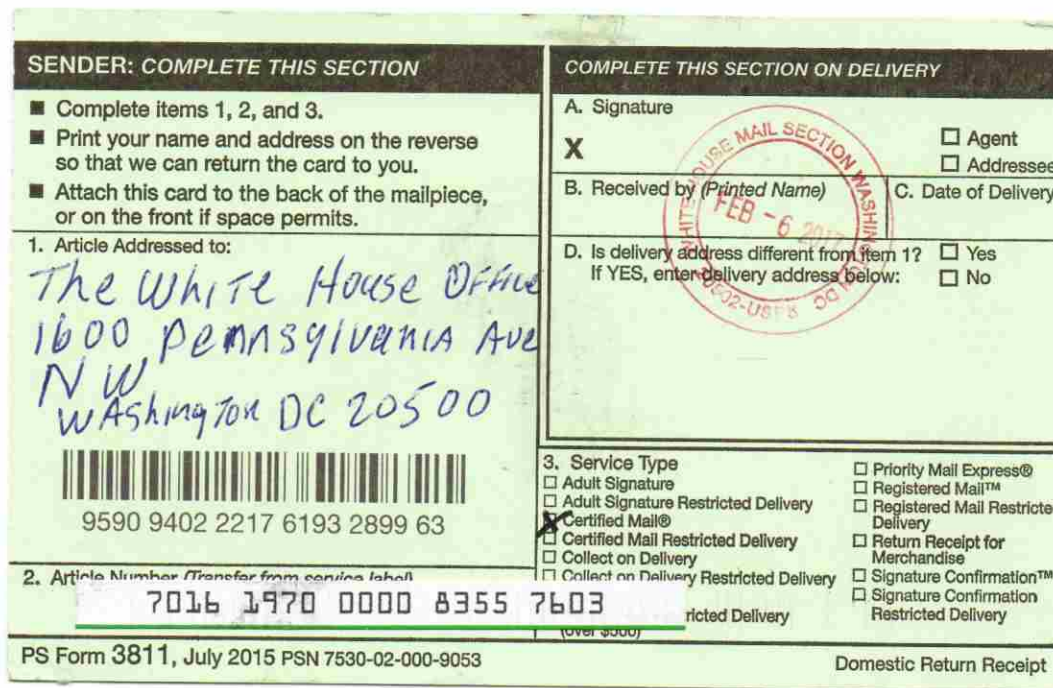 SENDER: COMPLETE THIS SECTION
■ Complete items 1, 2, and 3.
■ Print your name and address on the reverse
so that we can return the card to you.
■ Attach this card to the back of the mailpiece,
or on the front if space permits.
1. Article Addressed to:
The White House Office
1600 Pennsylvania Ave
NW
Washington DC 20500
9590 9402 2217 6193 2899 63
2. Article Number (Transfer from service label)
7016 1970 0000 8355 7603
PS Form 3811, July 2015 PSN 7530-02-000-9053
COMPLETE THIS SECTION ON DELIVERY
A. Signature
X
☐ Agent
☐ Addressee
B. Received by (Printed Name)
C. Date of Delivery
WHITE HOUSE MAIL SECTION WASHINGTON DC 20502-USPS
FEB - 6 2017
D. Is delivery address different from item 1? ☐ Yes
If YES, enter delivery address below: ☐ No
3. Service Type
☐ Adult Signature
☐ Adult Signature Restricted Delivery
X Certified Mail®
☐ Certified Mail Restricted Delivery
☐ Collect on Delivery
☐ Collect on Delivery Restricted Delivery
ricted Delivery
(over $500)
☐ Priority Mail Express®
☐ Registered Mail™
☐ Registered Mail Restricte
Delivery
☐ Return Receipt for
Merchandise
☐ Signature Confirmation™
☐ Signature Confirmation
Restricted Delivery
Domestic Return Receipt